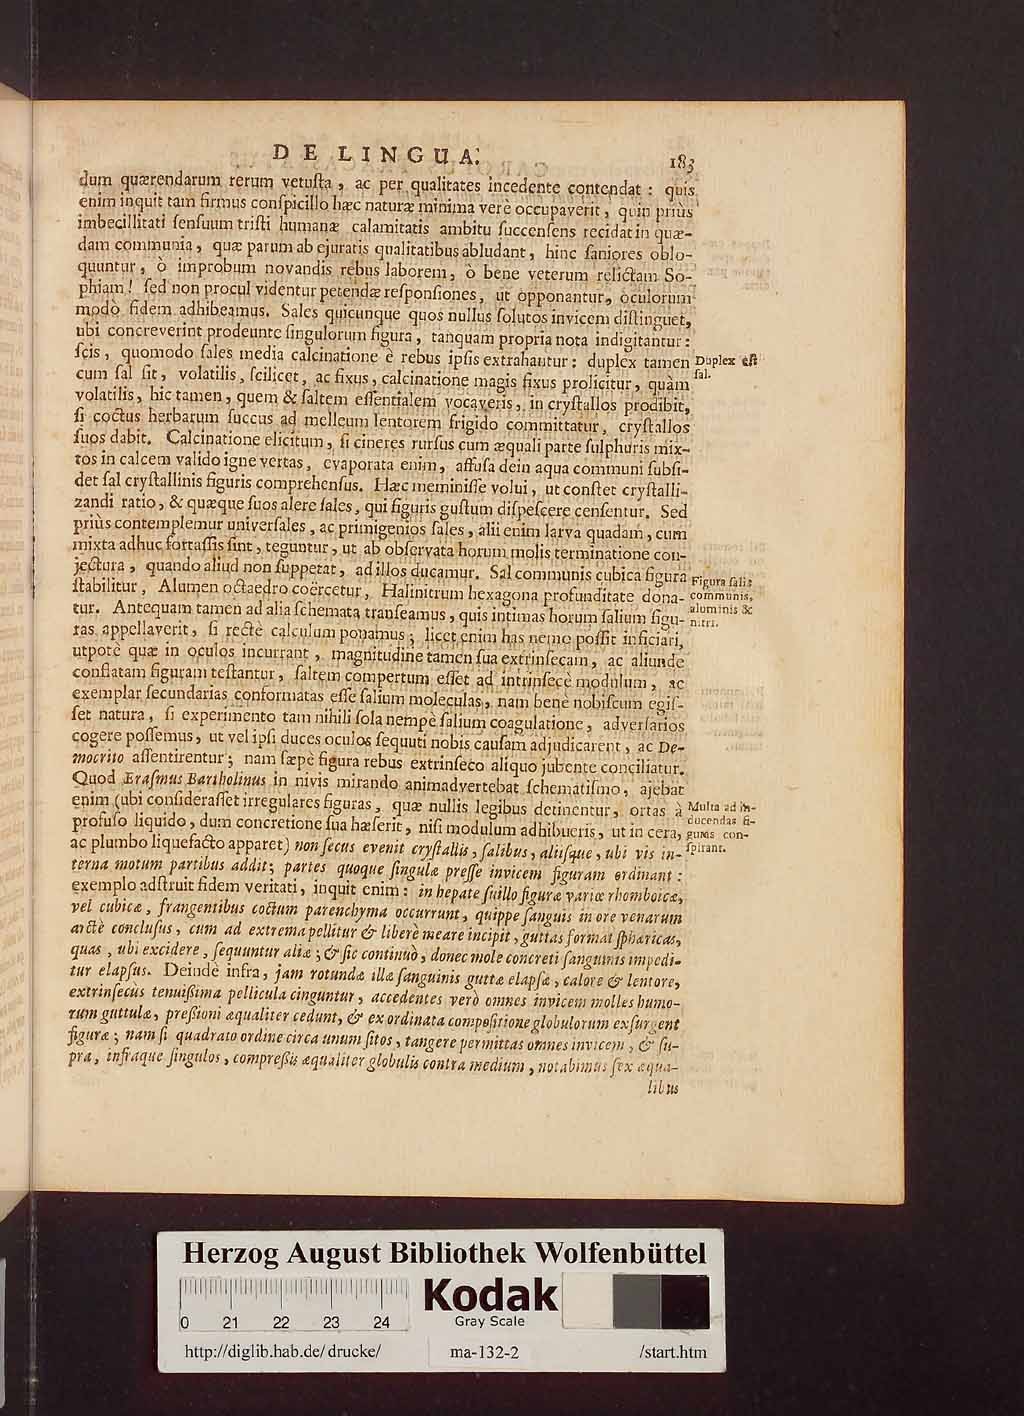 DE LINGUA.
183
dum quærendarum rerum vetuſta, ac per qualitates incedente contendat: quis
enim inquit tam firmus conſpicillo hæc naturæ minima verè occupaverit, quin priùs
imbecillitati ſenſuum triſti humanæ calamitatis ambitu ſuccenſens recidat in quæ-
dam communia, quæ parum ab ejuratis qualitatibus abludant, hinc ſaniores oblo-
quuntur, ò improbum novandis rebus laborem, ò bene veterum relictam So-
phiam! ſed non procul videntur petendæ reſponſiones, ut opponantur, oculorum
modò fidem adhibeamus. Sales quicunque quos nullus ſolutos invicem diſtinguet,
ubi concreverint prodeunte ſingulorum figura, tanquam propria nota indigitantur:
ſcis, quomodo ſales media calcinatione è rebus ipſis extrahantur: duplex tamen
Duplex eſt
cum ſal ſit, volatilis, ſcilicet, ac fixus, calcinatione magis fixus prolicitur, quàm
ſal.
volatilis, hic tamen, quem & ſaltem eſſentialem vocaveris, in cryſtallos prodibit,
ſi coctus herbarum ſuccus ad melleum lentorem frigido committatur, cryſtallos
ſuos dabit. Calcinatione elicitum, ſi cineres rurſus cum æquali parte ſulphuris mix-
tos in calcem valido igne vertas, evaporata enim, affuſa dein aqua communi ſubſi-
det ſal cryſtallinis figuris comprehenſus. Hæc meminiſſe volui, ut conſtet cryſtalli-
zandi ratio, & quæque ſuos alere ſales, qui figuris guſtum diſpeſcere cenſentur. Sed
priùs contemplemur univerſales, ac primigenios ſales, alii enim larva quadam, cum
mixta adhuc fortaſſis ſint, teguntur, ut ab obſervata horum molis terminatione con-
jectura, quando aliud non ſuppetat, ad illos ducamur. Sal communis cubica figura
Figura ſalis
ſtabilitur, Alumen octaedro coërcetur, Halinitrum hexagona profunditate dona-
communis,
tur. Antequam tamen ad alia ſchemata tranſeamus, quis intimas horum ſalium figu-
aluminis &
nitri.
ras appellaverit, ſi rectè calculum ponamus; licet enim has nemo poſſit inficiari,
utpotè quæ in oculos incurrant, magnitudine tamen ſua extrinſecam, ac aliunde
conflatam figuram teſtantur, ſaltem compertum eſſet ad intrinſecè modulum, ac
exemplar ſecundarias conformatas eſſe ſalium moleculas, nam benè nobiſcum egiſ-
ſet natura, ſi experimento tam nihili ſola nempè ſalium coagulatione, adverſarios
cogere poſſemus, ut vel ipſi duces oculos ſequuti nobis cauſam adjudicarent, ac De-
mocrito aſſentirentur; nam ſæpè figura rebus extrinſeco aliquo jubente conciliatur.
Quod Eraſmus Bartholinus in nivis mirando animadvertebat ſchematiſmo, ajebat
enim (ubi conſideraſſet irregulares figuras, quæ nullis legibus detinentur, ortas à
Multa ad in-
profuſo liquido, dum concretione ſua hæſerit, niſi modulum adhibueris, ut in cera,
ducendas fi-
guras con-
ac plumbo liquefacto apparet) non ſecus evenit cryſtallis, ſalibus, aliiſque, ubi vis in-
ſpirant.
terna motum partibus addit; partes quoque ſingulæ preſſe invicem figuram ordinant:
exemplo adſtruit fidem veritati, inquit enim: in hepate ſuillo figuræ variæ rhomboicæ,
vel cubicæ, frangentibus coctum parenchyma occurrunt, quippe ſanguis in ore venarum
arctè concluſus, cum ad extrema pellitur & liberè meare incipit, guttas format ſphæricas,
quas, ubi excidere, ſequuntur aliæ; & ſic continuò, donec mole concreti ſanguinis impedi-
tur elapſus. Deindè infra, jam rotundæ illæ ſanguinis guttæ elapſæ, calore & lentore,
extrinſecùs tenuiſſima pellicula cinguntur, accedentes verò omnes invicem molles humo-
rum guttulæ, preſſioni æqualiter cedunt, & ex ordinata compoſitione globulorum exſurgent
figuræ; nam ſi quadrato ordine circa unum ſitos, tangere permittas omnes invicem, & ſu-
pra, infraque ſingulos, compreſſis æqualiter globulis contra medium, notabimus ſex æqua-
libus
Herzog August Bibliothek Wolfenbüttel
Kodak
Gray Scale
0 21 22 23 24
http://diglib.hab.de/drucke/ ma-132-2 /start.htm